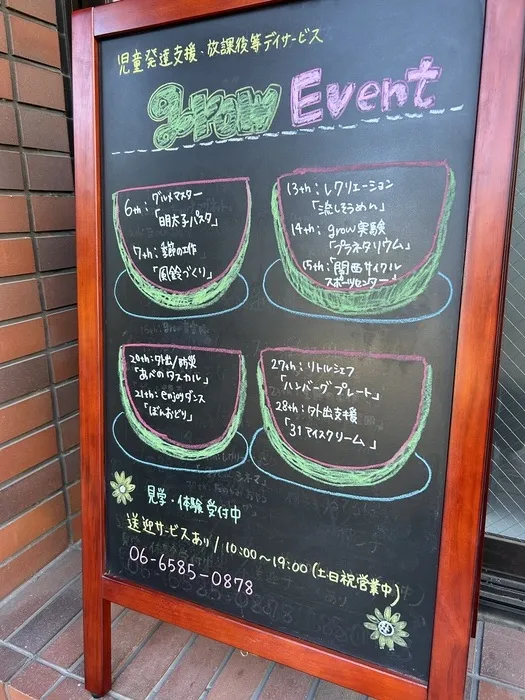 児童発達支援・放課後等デイサービス
grow Event
6th：グルメマスター
「明太子パスタ」
7th：季節の工作
「風鈴づくり」
13th：レクリエーション
「流しそうめん」
14th：grow実験
「プラネタリウム」
15th：「関西サイクル
スポーツセンター」
20th：外出/防災
「あべのタスカル」
21th：enjoyダンス
「ぼんおどり」
27th：リトルシェフ
「ハンバーグプレート」
28th：外出支援
「31アイスクリーム」
見学・体験受付中
送迎サービスあり/10:00～19:00(土日祝営業中)
06-6585-0878